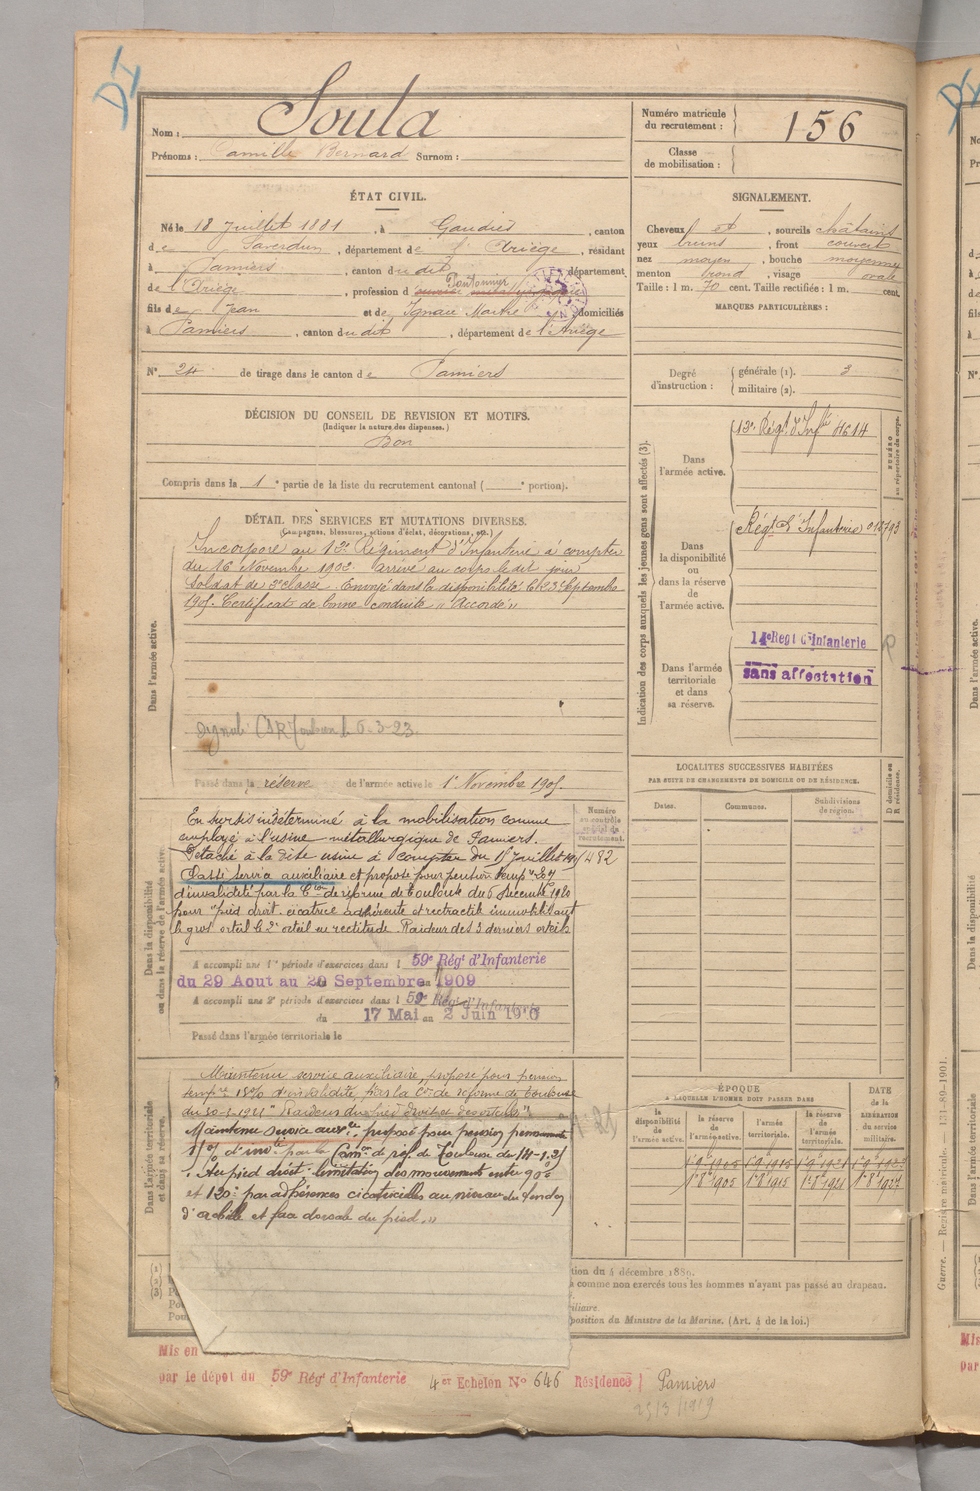 Nom : Soula
Prénoms : Camille Bernard Surnom :
Numéro matricule du recrutement : 156
Classe de mobilisation :
ÉTAT CIVIL.
Né le 18 Juillet 1881, à Gaudiès, canton
de Saverdun, département de l'Ariège, résidant
à Pamiers, canton du dit, département
de l'Ariège, profession d Pontonnier
fils de Jean et de Ignace Marthe domiciliés
à Pamiers, canton du dit, département de l'Ariège
N° 24 de tirage dans le canton de Pamiers
SIGNALEMENT.
Cheveux et, sourcils châtains
yeux bruns, front couvert
nez moyen, bouche moyenne
menton rond, visage ovale
Taille : 1 m. 70 cent. Taille rectifiée : 1 m. cent.
MARQUES PARTICULIÈRES :
Degré d'instruction : générale (1). 3
militaire (2).
DÉCISION DU CONSEIL DE REVISION ET MOTIFS.
(Indiquer la nature des dispenses.)
Bon
Compris dans la 1e partie de la liste du recrutement cantonal ( e portion).
DÉTAIL DES SERVICES ET MUTATIONS DIVERSES.
(Campagnes, blessures, actions d'éclat, décorations, etc.)
Dans l'armée active.
Incorporé au 13e Régiment d'Infanterie à compter
du 16 Novembre 1902 arrivé au corps le dit jour
soldat de 2e classe. Envoyé dans la disponibilité le 23 Septembre
1905. Certificat de bonne conduite "Accordé"
Signalé CAR Toulouse le 6-3-23
Passé dans la réserve de l'armée active le 1er Novembre 1905.
Indication des corps auxquels les jeunes gens sont affectés (3).
Dans l'armée active.
13e Régt d'Infie 4614
NUMÉRO au répertoire du corps.
Dans la disponibilité ou dans la réserve de l'armée active.
Régt d'Infanterie 015793
Dans l'armée territoriale et dans sa réserve.
14e Régt d'Infanterie
sans affectation
LOCALITÉS SUCCESSIVES HABITÉES
PAR SUITE DE CHANGEMENTS DE DOMICILE OU DE RÉSIDENCE.
Dates.
Communes.
Subdivisions de région.
D domicile ou R résidence.
Dans la disponibilité ou dans la réserve de l'armée active.
Numéro au contrôle spécial du recrutement.
En sursis indéterminé à la mobilisation comme
employé à l'usine métallurgique de Pamiers.
Détaché à la dite usine à compter du 1r Juillet
1492
Passé service auxiliaire et proposé pour pension temp
d'invalidité par la Cion de réforme de Toulouse du 6 décembre 1920
pour "pied droit. cicatrice adhérente et rétractile immobilisant
le gros orteil le 2e orteil en rectitude. Raideur des 3 derniers orteils
A accompli une 1re période d'exercices dans l 59e Régt d'Infanterie
du 29 Aout au 20 Septembre 1909
A accompli une 2e période d'exercices dans l 59e Régt d'Infanterie
du 17 Mai au 2 Juin 1910
Passé dans l'armée territoriale le
Dans l'armée territoriale et dans sa réserve.
Maintenu service auxiliaire, proposé pour pension
temp 18% d'invalidité, par la Cion de réforme de Toulouse
Maintenu service auxre, proposé pour pension permanente
par la Comon de réf. de Toulouse du 14-1-25
Au pied droit : limitation des mouvements entre 90°
et 120° par adhérences cicatricielles au niveau du tendon
d'achille et face dorsale du pied."
ÉPOQUE
A LAQUELLE L'HOMME DOIT PASSER DANS
DATE de la LIBÉRATION du service militaire.
la disponibilité de l'armée active.
la réserve de l'armée active.
l'armée territoriale.
la réserve de l'armée territoriale.
tion du 4 décembre 1889.
comme non exercés tous les hommes n'ayant pas passé au drapeau.
iliaire.
position du Ministre de la Marine. (Art. 4 de la loi.)
Mis en
par le dépot du 59e Régt d'Infanterie 4er Echelon N° 646 Résidence Pamiers
Guerre. — Registre matricule. — 131-89-1901.